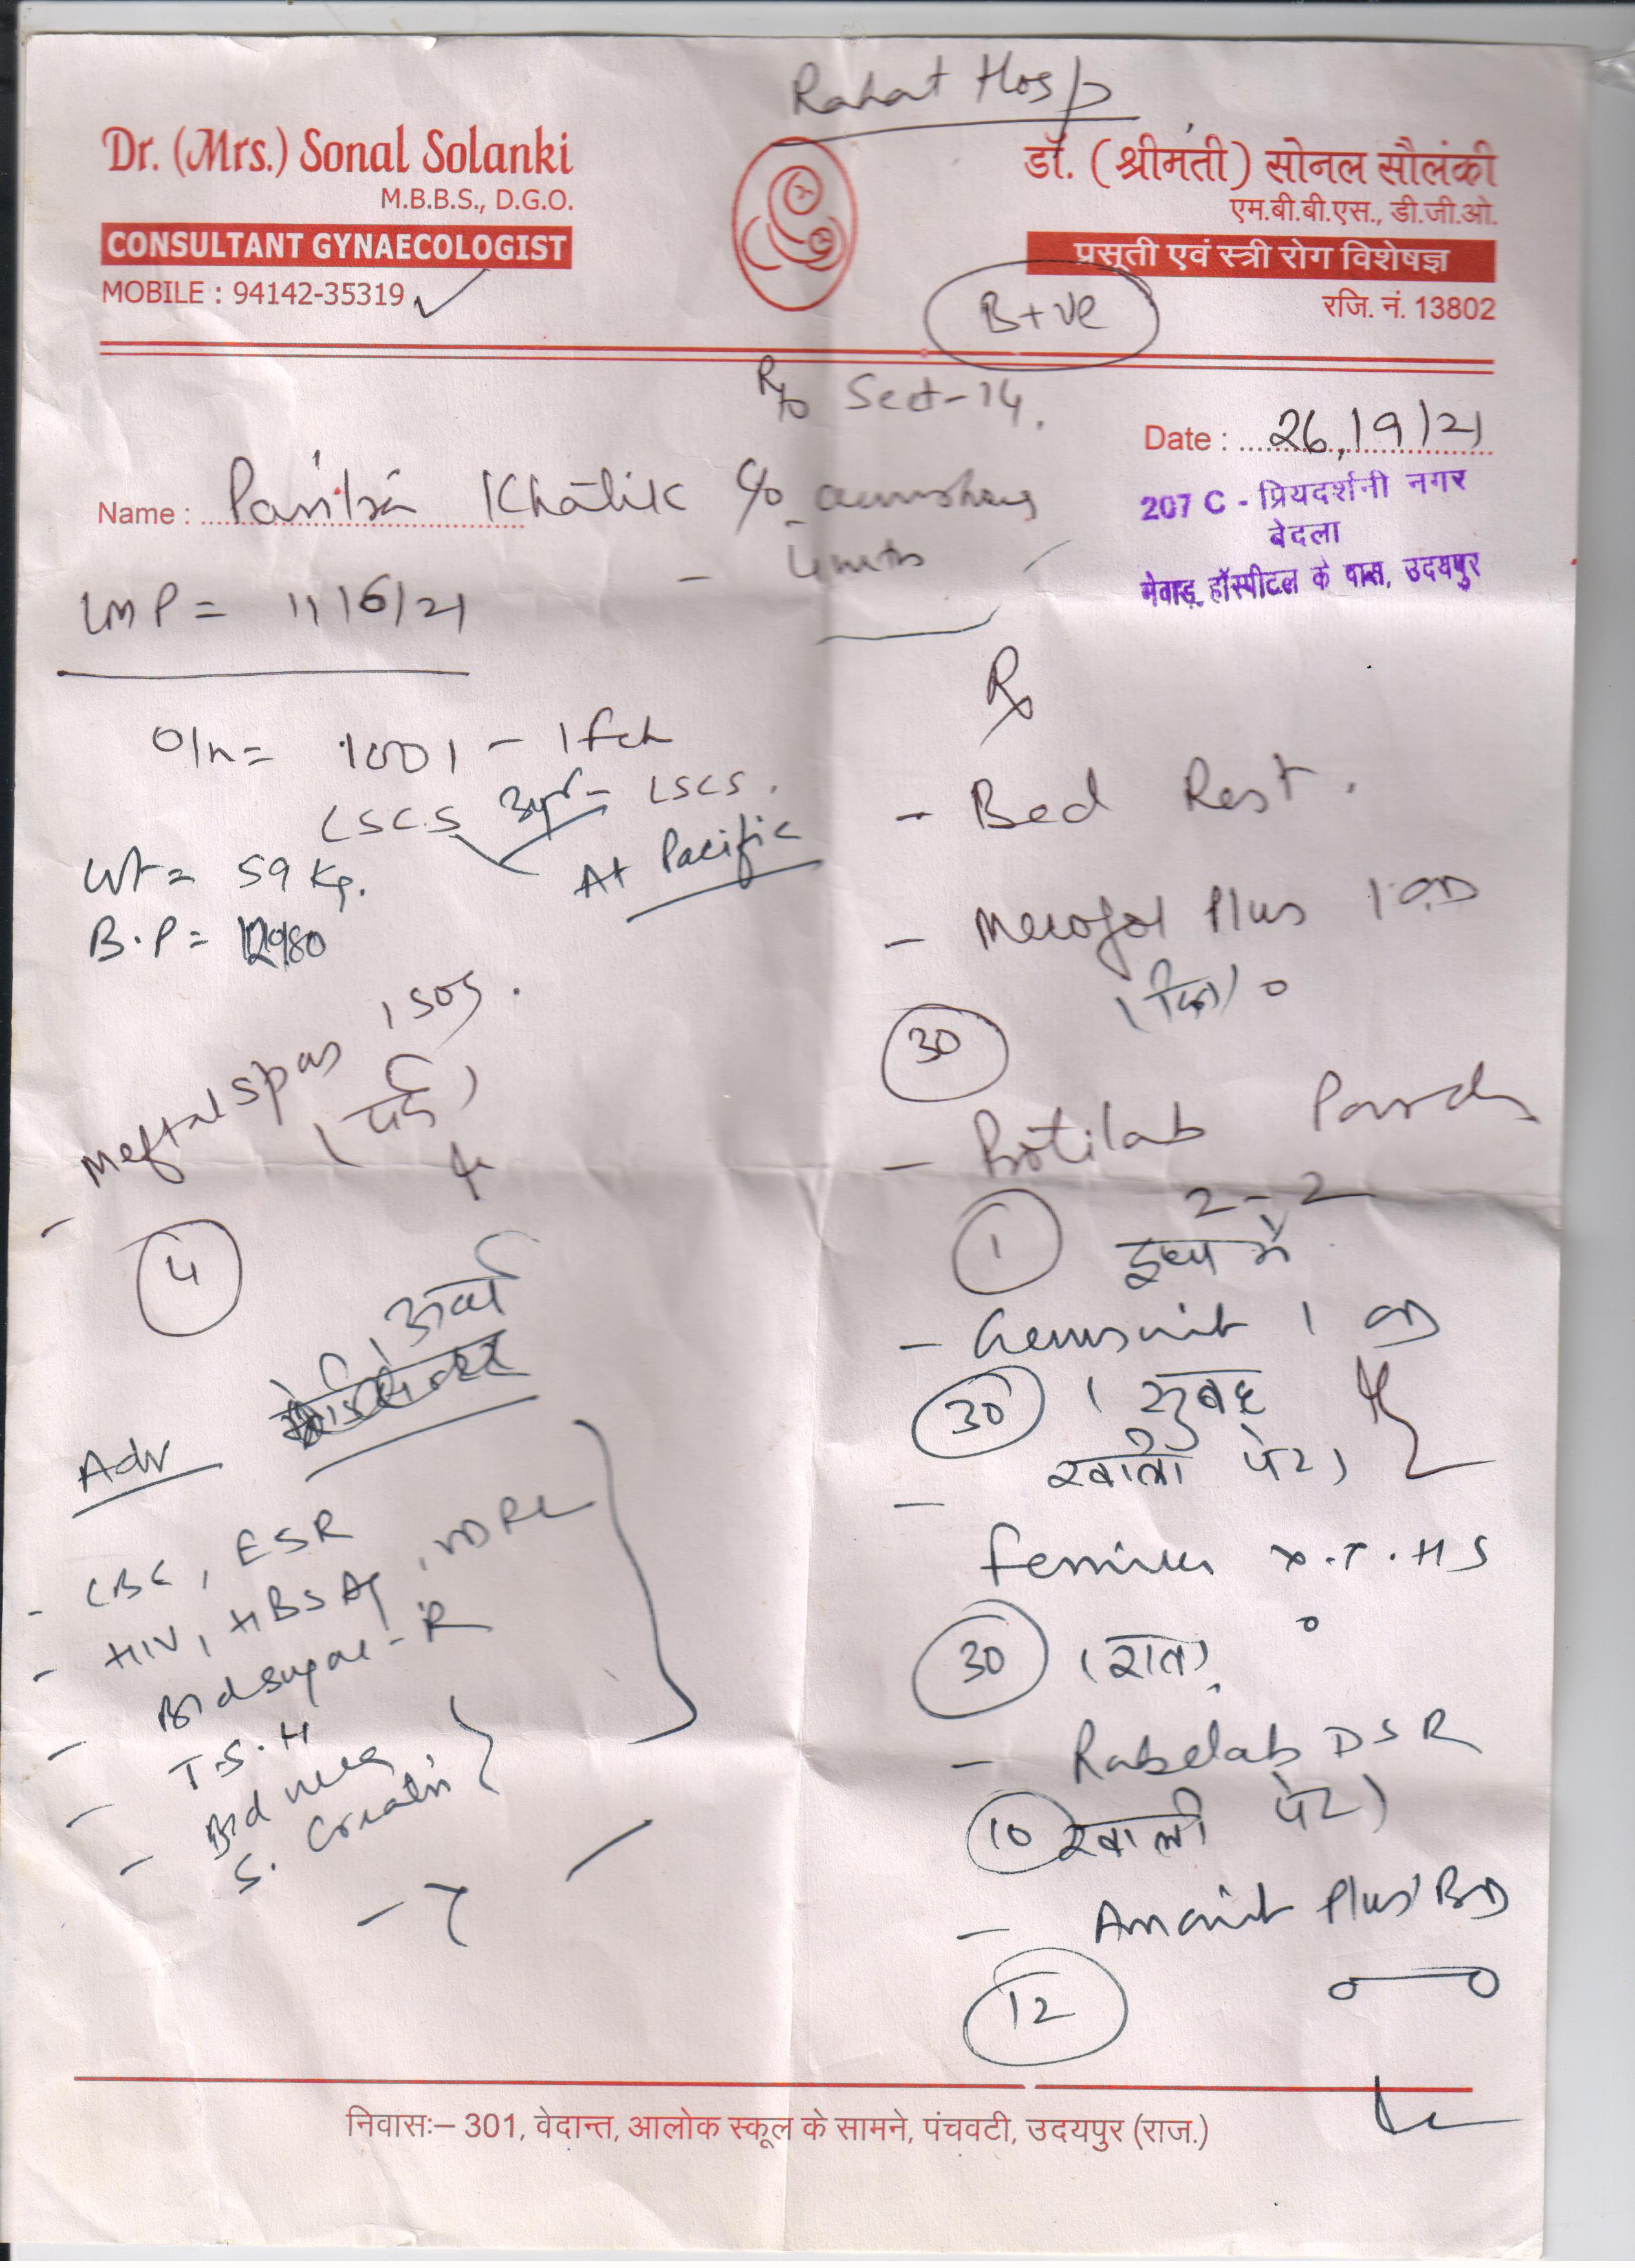 Rahat Hosp
Dr. (Mrs.) Sonal Solanki
M.B.B.S., D.G.O.
CONSULTANT GYNAECOLOGIST
MOBILE : 94142-35319
डॉ. ( श्रीमती ) सोनल सौलंकी
एम.बी.बी.एस., डी.जी.ओ.
प्रसूती एवं स्त्री रोग विशेषज्ञ
रजि. नं. 13802
B+ve
R/o Sect-14.
Date : 26/9/21
207 C - प्रियदर्शनी नगर
बेदला
मेवाड़ हॉस्पीटल के पास, उदयपुर
Name : Khatik c/o
- 4 mths
LMP = 1/6/21
O/h = 1001 - 1 fch
LSCS 3yr - LSCS.
At Pacific
Wt = 59 Kg.
B.P = 120/80
- Meftal spas 1 SOS.
(दर्द)
4
Adv
- CBC, ESR
- HIV, HBSAg, VDRL
- Bld sugar - R
- T.S.H
- Bld urea
S. Creatin
Rx
- Bed Rest.
- Plus 1 OD
(दिन)
30
- Protilab Powder
2-2
1 दूध में
- 1 OD
30 (सुबह
खाली पेट)
- X.T. HS
30 (रात)
- Rabelab DSR
10 खाली पेट)
- Plus BD
12
निवासः– 301, वेदान्त, आलोक स्कूल के सामने, पंचवटी, उदयपुर (राज.)